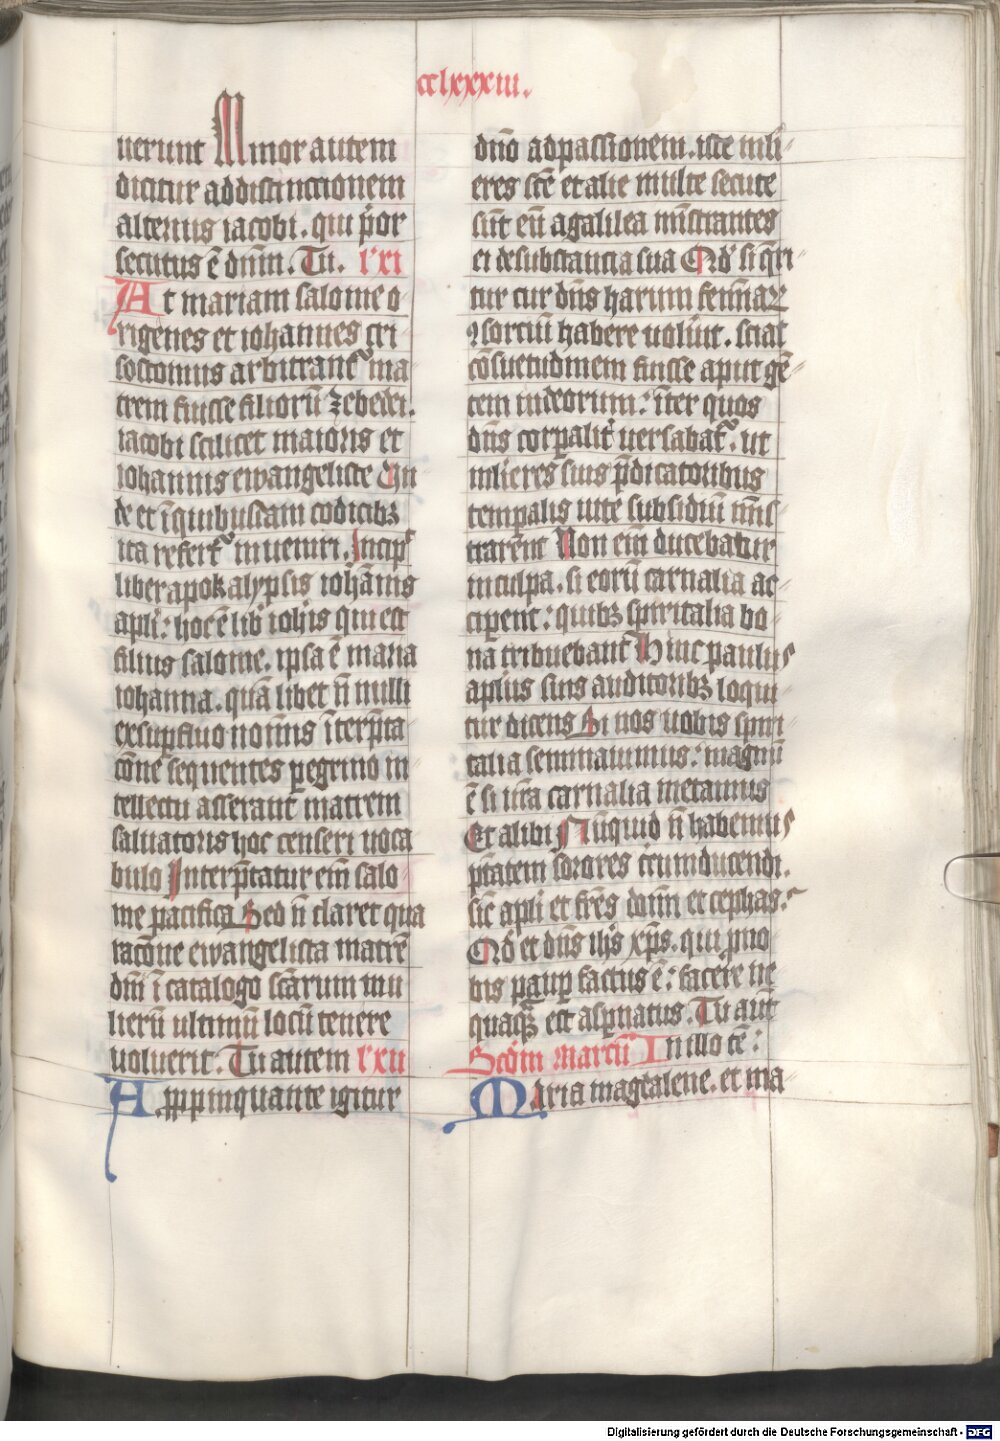 cclxxxiii.
uerunt Minor autem
dicitur ad distinctionem
alterius iacobi. qui p̓or
secutus ē dn̄m. Tu. lc̓xi
At mariam salome o
rigenes et iohannes cri
sostomus arbitrant᷑ ma
trem fuisse filiorū zebedei.
iacobi scilicet maioris et
iohannis ewangeliste Un
de et ī quibusdam codicibꝫ
ita refert᷑ inueniri. Incip̄
liber apokalypsis ioh̄annis
apl̄i: hoc ē lib̓ ioh̄is qui est
filius salome. ipsa ē maria
iohanna. quālibet n̄ nulli
ex supfluo nom̄is īterp̄ta
cōne sequentes pegrino in
tellectu asserant matrem
saluatoris hoc censeri uoca
bulo Interp̄tatur em̄ salo
me pacifica Sed n̄ claret qua
racōne ewangelista matrē
dn̄i ī catalogo sc̄arum mu
lierū ultimū locū tenere
uoluerit. Tu autem lc̓xii
Appropinquante igitur
dn̄o ad passionem. iste mli
eres sc̄e et alie multe secute
sūt eū a galilea mīstrantes
ei de substancia sua Qd̓ si q̄ri
tur cur dn̄s harum femīaꝝ
ꝯsorciū habere uoluit. sciat
cōsuetudinem fuisse aput gē
tem iudeorum: īter quos
dn̄s corpalit̓ uersabat᷑. ut
mlieres suis p̄dicatoribus
temporalis uite subsidiū mīs
trarent Non em̄ ducebatur
in culpa. si eorū carnalia ac
ciperent: quibꝫ spiritalia bo
na tribuebant Hinc paulus
aplūs suis auditoribꝫ loqui
tur dicens Si nos uobis spiri
talia seminauimus: magnū
ē si ur̄a carnalia metamus
Et alibi Nūquid n̄ habemus
p̄tatem sorores circumducendi.
sic̄ apl̄i et fr̄es dom̄i et cephas.
Qd̓ et dn̄s ih̄s xp̄s. qui p̄ no
bis paup factus ē: facere ne
quaq̄ȝ est aspnatus. Tu aūt
Scd̄m Marcū In illo tē:
Maria magdalene. et ma
Digitalisierung gefördert durch die Deutsche Forschungsgemeinschaft - DFG